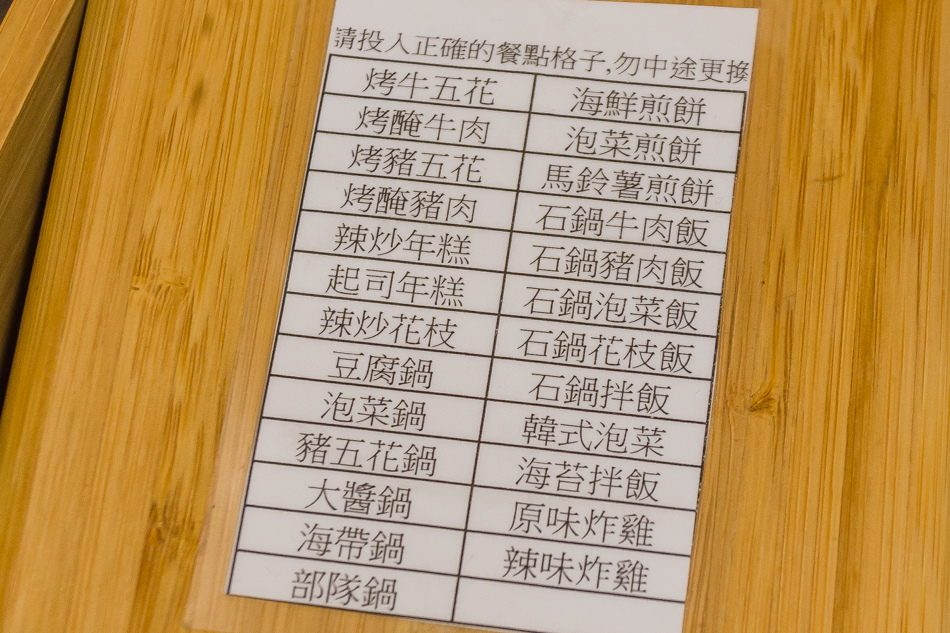 請投入正確的餐點格子,勿中途更換
烤牛五花 海鮮煎餅
烤醃牛肉 泡菜煎餅
烤豬五花 馬鈴薯煎餅
烤醃豬肉 石鍋牛肉飯
辣炒年糕 石鍋豬肉飯
起司年糕 石鍋泡菜飯
辣炒花枝 石鍋花枝飯
豆腐鍋 石鍋拌飯
泡菜鍋 韓式泡菜
豬五花鍋 海苔拌飯
大醬鍋 原味炸雞
海帶鍋 辣味炸雞
部隊鍋